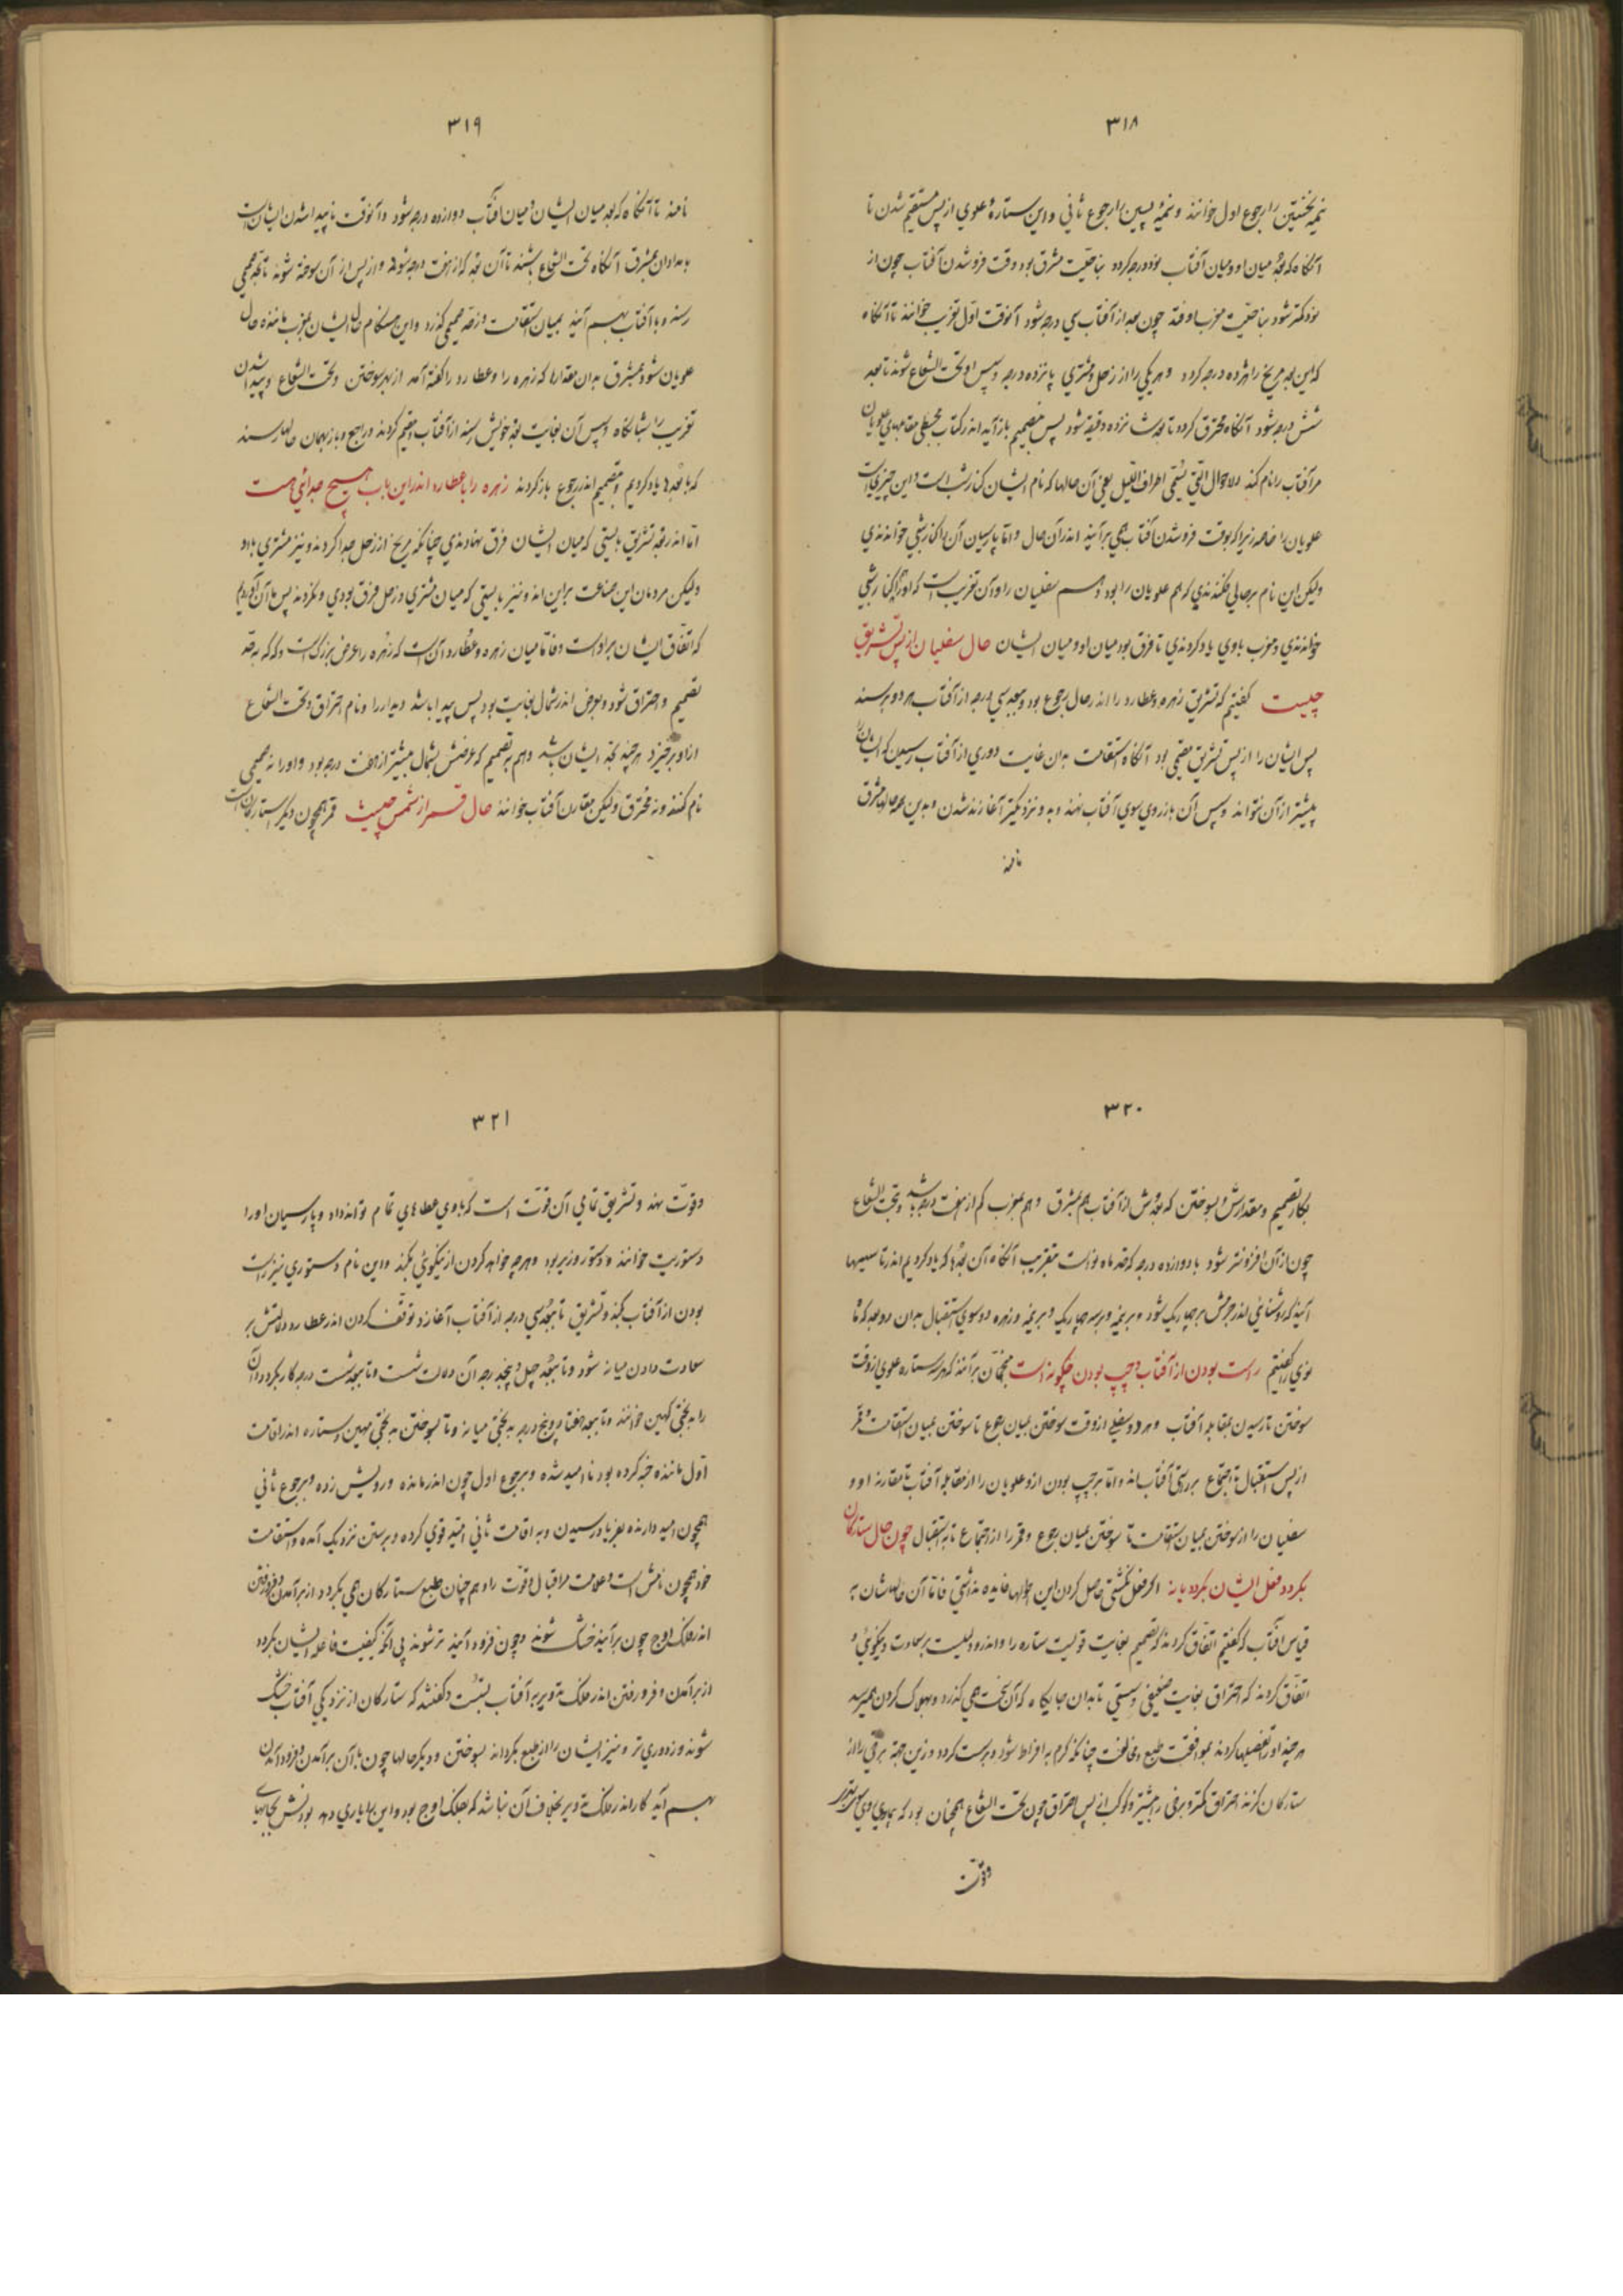 ۳۱۸
نیمهٔ نخستین را رجوع اول خوانند و نیمهٔ پسین را رجوع ثانی و این ستارهٔ علوی از پس مستقیم شدن تا
آنگاه که بعد میان او و میان آفتاب نود درجه گردد بناحیت مشرق بود وقت فروشدن آفتاب چون از
نود کمتر شود بناحیت مغرب اوفتد چون بعد از آفتاب سی درجه شود آنوقت اول تغریب خوانند تا آنگاه
که این بعد مریخ را هژده درجه گردد و هر یکی را از زحل و مشتری پانزده درجه و سپس او تحت الشعاع شوند تا بعد
شش درجه شود آنگاه محترق گردد تا بعدش شانزده دقیقه شود پس بتصمیم باز آید اندر کتاب مجسطی مقامهای علویان
مر آفتاب را نام کند و الاحوال التی یسمی اطراف اللیل یعنی آن حالها که نام ایشان کنار شب است و این چیزیست
علویان را خاصه زیرا که بوقت فروشدن آفتاب همی برآیند اندر آن حال و اما پارسیان آن را کنار شبی خوانندی
ولیکن این نام بر حالی فکندندی که هم علویان را بود و هم سفلیان را و آن تغریب است که او را کنار شبی
خوانندی و مغرب باوی یاد کردندی تا فرق بود میان او و میان ایشان حال سفلیان از پس تشریق
چیست گفتیم که تشریق زهره و عطارد را اندر حال رجوع بود و ببعد سی درجه از آفتاب هر دو برسند
پس ایشان را از پس تشریق مقیمی بود آنگاه استقامت بدان غایت دوری از آفتاب رسیدن که ایشان را
بیشتر از آن نتواند و سپس آن باز روی سوی آفتاب نهند و بدو نزدیکتر آغازند شدن و بدین همه حالها مشرق
نامند
۳۱۹
نامند تا آنگاه که بعد میان ایشان و میان آفتاب دوازده درجه شود و آنوقت ناپیدا شدن ایشان است
بامدادان بمشرق آنگاه تحت الشعاع باشند تا آن بعد کم از هفت درجه شود و از پس از آن سوخته شوند تا بحد صمیمی
رسند و با آفتاب بهم آیند بمیان استقامت و از حد صمیمی گذرد و این هنگام حال ایشان بمغرب مانندهٔ حال
علویان شود بمشرق بدان مقدارها که زهره را و عطارد را گفته آمد از بهر سوختن و تحت الشعاع و پیدا شدن
تغریب را شبانگاه و سپس آن بغایت بعد خویش رسند از آفتاب و مقیم گردند و راجع و باز بهمان حالها رسند
که بابعد یاد کردیم و بتصمیم اندر رجوع باز گردند زهره را با عطارد اندر این باب هیچ جدائی هست
اما اندر بعد تشریق بایستی که میان ایشان فرق نهادندی چنانکه مریخ از زحل جدا کردند و نیز مشتری با او
ولیکن مردمان این صناعت بر این اند و نیز بایستی که میان مشتری و زحل فرق بودی و نکردند پس ما آن گوئیم
که اتفاق ایشان بر اوست و فاما میان زهره و عطارد آنست که زهره را عرض بزرگ است و گه که بحد
تصمیم و احتراق شود و بعرض اندر شمال بغایت بود پس پیدا باشد و دیدار را و نام احتراق و تحت الشعاع
ازو برخیزد هرچند بحد ایشان باشد و هم به تصمیم که عرضش بشمال بیشتر از هفت درجه بود و او را نه صمیمی
نام کنند و نه محترق ولیکن مقارن آفتاب خوانند حال قمر از شمس چیست قمر همچون دیگر ستارگان است
۳۲۰
بکار تصمیم و مقدارش و سوختن که بعدش از آفتاب هم بمشرق و هم بمغرب کم از هفت درجه باشد و تحت الشعاع
چون از آن افزونتر شود با دوازده درجه که حد ماه نو است بتقریب آنگاه آن بعدها که یاد کردیم اندر تاسیسها
آیند که روشنایی اندر جرمش بر چهار یک شود و بر نیمه و بر سه چهار یک و بر نیمه و زهره دو سوی استقبال بدان دو بعد که ما
نوی را گفتیم راست بودن از آفتاب و چپ بودن چگونه است منجمان برآنند که هر سه ستاره علوی از وقت
سوختن تا رسیدن بمقابله آفتاب و هر دو سفلی از وقت سوختن بمیان رجوع تا سوختن بمیان استقامت و قمر
از پس استقبال تا اجتماع بر راستی آفتاب اند و اما بر چپ بودن ازو علویان را از مقابله آفتاب تا مقارنهٔ او و
سفلیان را از سوختن بمیان استقامت تا سوختن بمیان رجوع و قمر را از اجتماع تا به استقبال چون حال ستارگان
بگردد فعل ایشان بگردد یا نه اگر فعل نگشتی حاصل کردن این حالها فایده نداشتی فاما آن حالهاشان بر
قیاس آفتاب که گفتیم اتفاق کردند که تصمیم بغایت قوتیست ستاره را و اندرو دلیلیست بر سعادت و نیکوئی و
اتفاق کردند که احتراق بغایت ضعیفی و سستی تا بدان جایگاه که آن نحست همی گذرد و بهلاک کردن همی رسد
هرچند او را تفصیلها کردند بموافقت طبع و مخالفت چنانکه گرم به افراط شود و درست گردد و زین جهة برخی را از
ستارگان گزند احتراق کمتر و برخی را بیشتر و کوکب از پس احتراق چون تحت الشعاع همچنان بود که بیماری روی سوی تندرستی
و قوت
۳۲۱
و قوت نهد و تشریق تمامی آن قوت است که باوی عطاهای تمام تواند داد و پارسیان او را
دستوریت خوانند و دستور وزیر بود و هرچه خواهد کردن از نیکوئی بکند و این نام دستوری نیز راست
بودن از آفتاب کنند و تشریق تا ببعد سی درجه از آفتاب آغازد توقف کردن اندر عطا و دلالتش بر
سعادت دادن میانه شود و تا ببعد چهل و پنج درجه آن دلالت هست و تا ببعد شست درجه کار بگردد و آن
را بدبختی کهین خوانند و تا ببعد هفتاد و پنج درجه بدبختی میانه و تا بسوختن بدبختی مهین و ستاره اندر اقامت
اول مانندهٔ خبه کرده بود نا امید شده و برجوع اول چون اندر مانده و رویش زده و برجوع ثانی
همچون امید دارنده بفریاد رسیدن و به اقامت ثانی امید قوی کرده و برستن نزدیک آمده و استقامت
خود همچون نامش است و علامت مر اقبال و قوت را و هم چنان طبع ستارگان همی بگردد از برآمدن و فرو رفتن
اندر فلک اوج چون برآیند خشک شوند و چون فرود آیند تر شوند پی آنکه کیفیت فاعلهٔ ایشان بگردد
از برآمدن و فرو رفتن اندر فلک تدویر به آفتاب بستست و گفتند که ستارگان از نزدیکی آفتاب خشک
شوند و ز دوری تر و نیز ایشان را از طبع بگرداند سوختن و دیگر حالها چون با آن برآمدن و فرود آمدن
بهم آید کار اندر فلک تدویر بخلاف آن نباشد که بفلک اوج بود و این را یاری دهد بودنش بجایهای